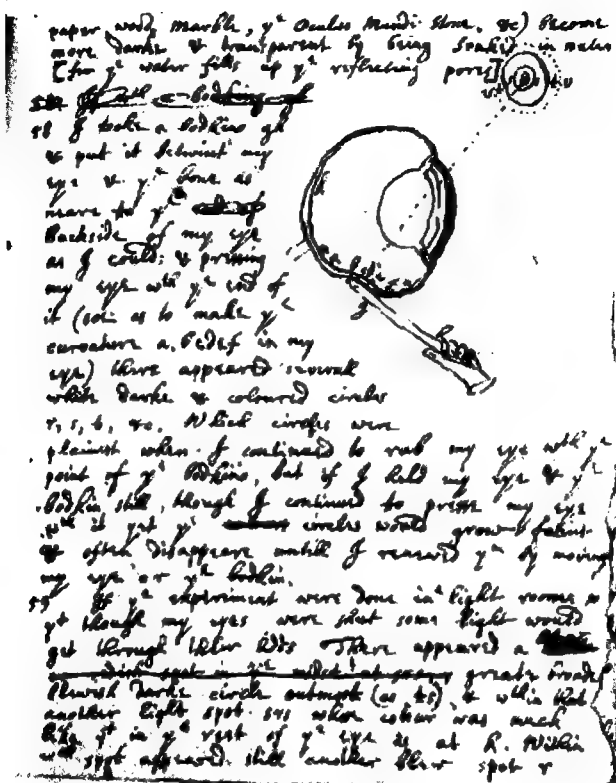 paper, wood, Marble, yᵉ Oculus Mundi Stone, &c) become
more darke & transparent by being Soaked in water
[for yᵉ water fills up yᵉ reflecting pores]
58 I tooke a bodkine gh
& put it betwixt my
eye & yᵉ bone as
neare to yᵉ
backside of my eye
as I could: & pressing
my eye wᵗʰ yᵉ end of
it (soe as to make yᵉ
curvature a, bcdef in my
eye) there appeared severall
white darke & coloured circles
r, s, t, &c. Which circles were
plainest when I continued to rub my eye wᵗʰ yᵉ
point of yᵉ bodkine, but if I held my eye & yᵉ
bodkin still, though I continued to presse my eye
wᵗʰ it yet yᵉ circles would grow faint
& often disappeare untill I renewed yᵐ by moving
my eye or yᵉ bodkin.
59 If yᵉ experiment were done in a light roome so
yᵗ though my eyes were shut some light would
get through their lidds There appeared a
greate broade
blewish darke circle outmost (as ts), & wᵗʰin that
another light spot srs whose colour was much
like yᵗ in yᵉ rest of yᵉ eye as at k. Within
wᶜʰ spot appeared still another blew spot r